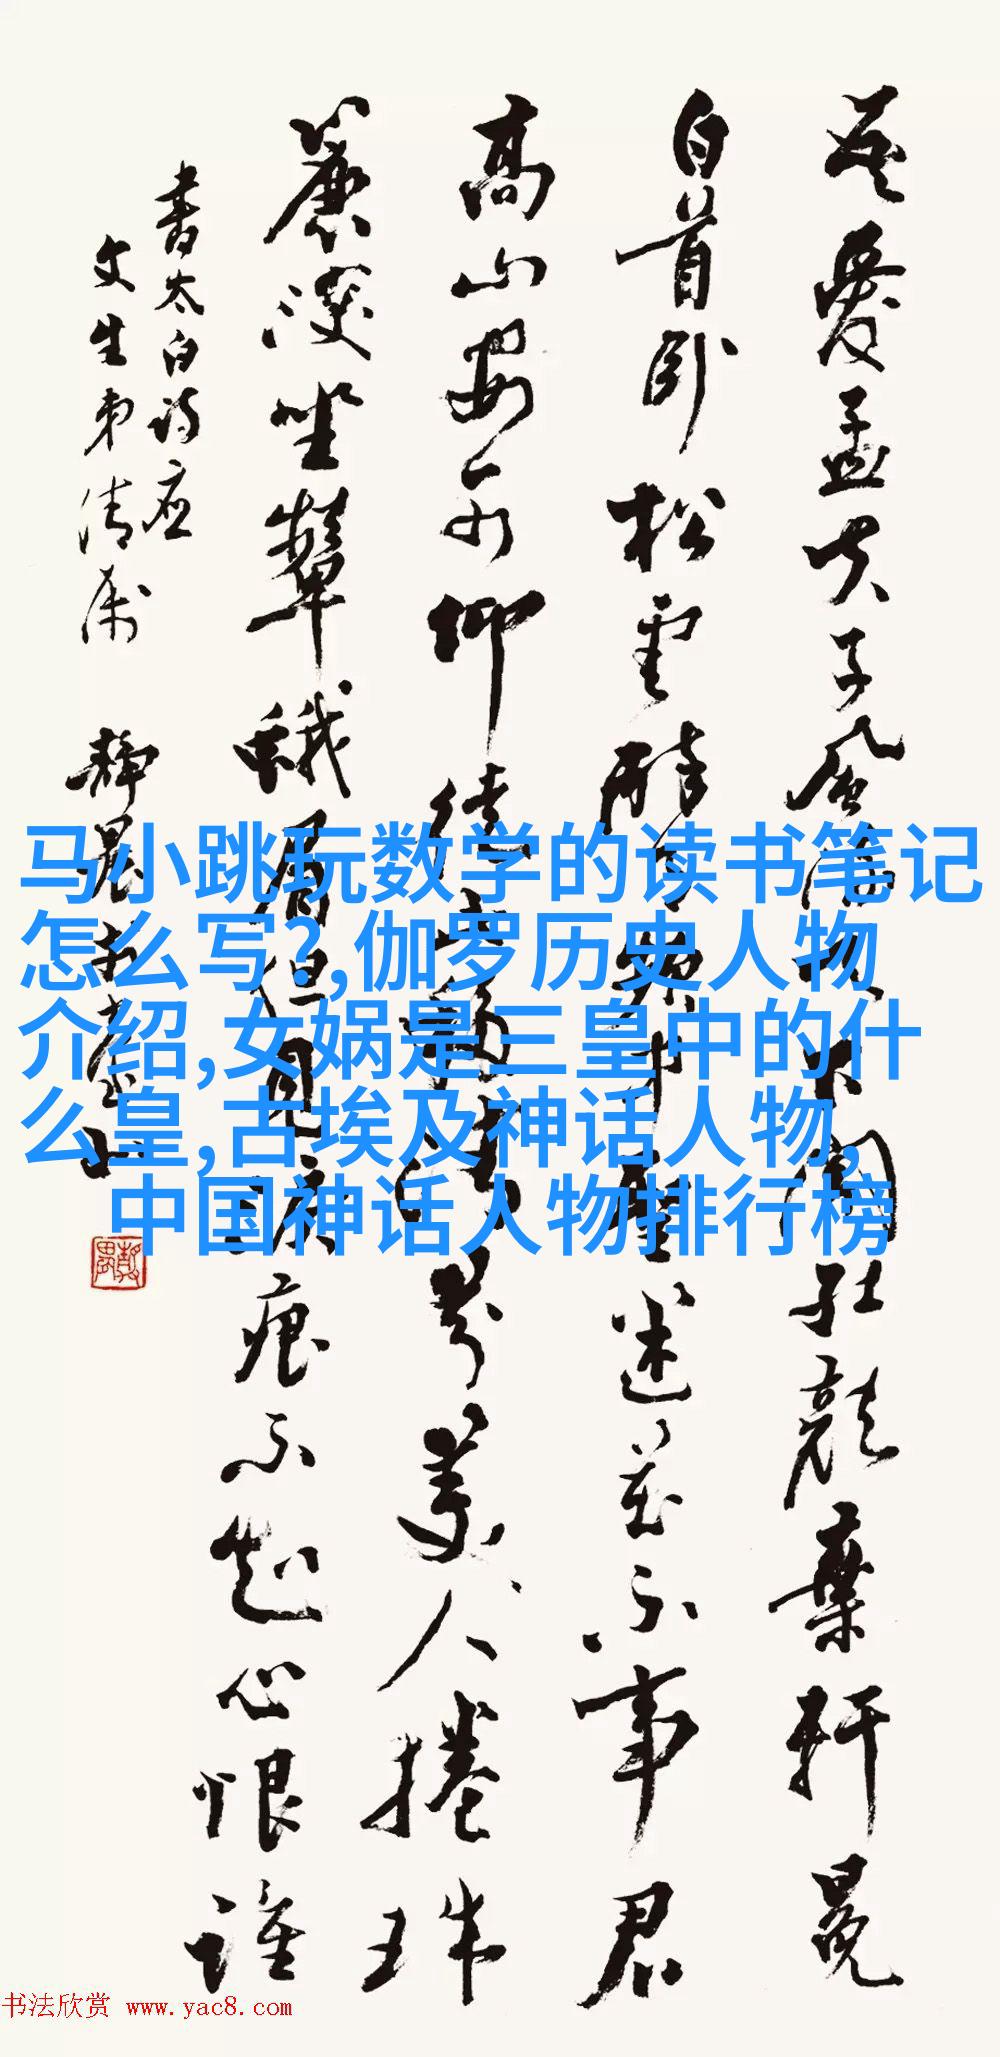 吾爱孟夫子风流天下闻红颜弃轩冕
白首卧松云醉月频中圣迷花不事君
高山安可仰徒此揖清芬美人捲珠
簾深坐颦蛾眉但见泪痕湿不知心恨谁
書太白诗应
文生弟清属
静晨
马小跳玩数学的读书笔记
怎么写?,伽罗历史人物
介绍,女娲是三皇中的什
么皇,古埃及神话人物,
中国神话人物排行榜
书法欣赏 www.yac8.com